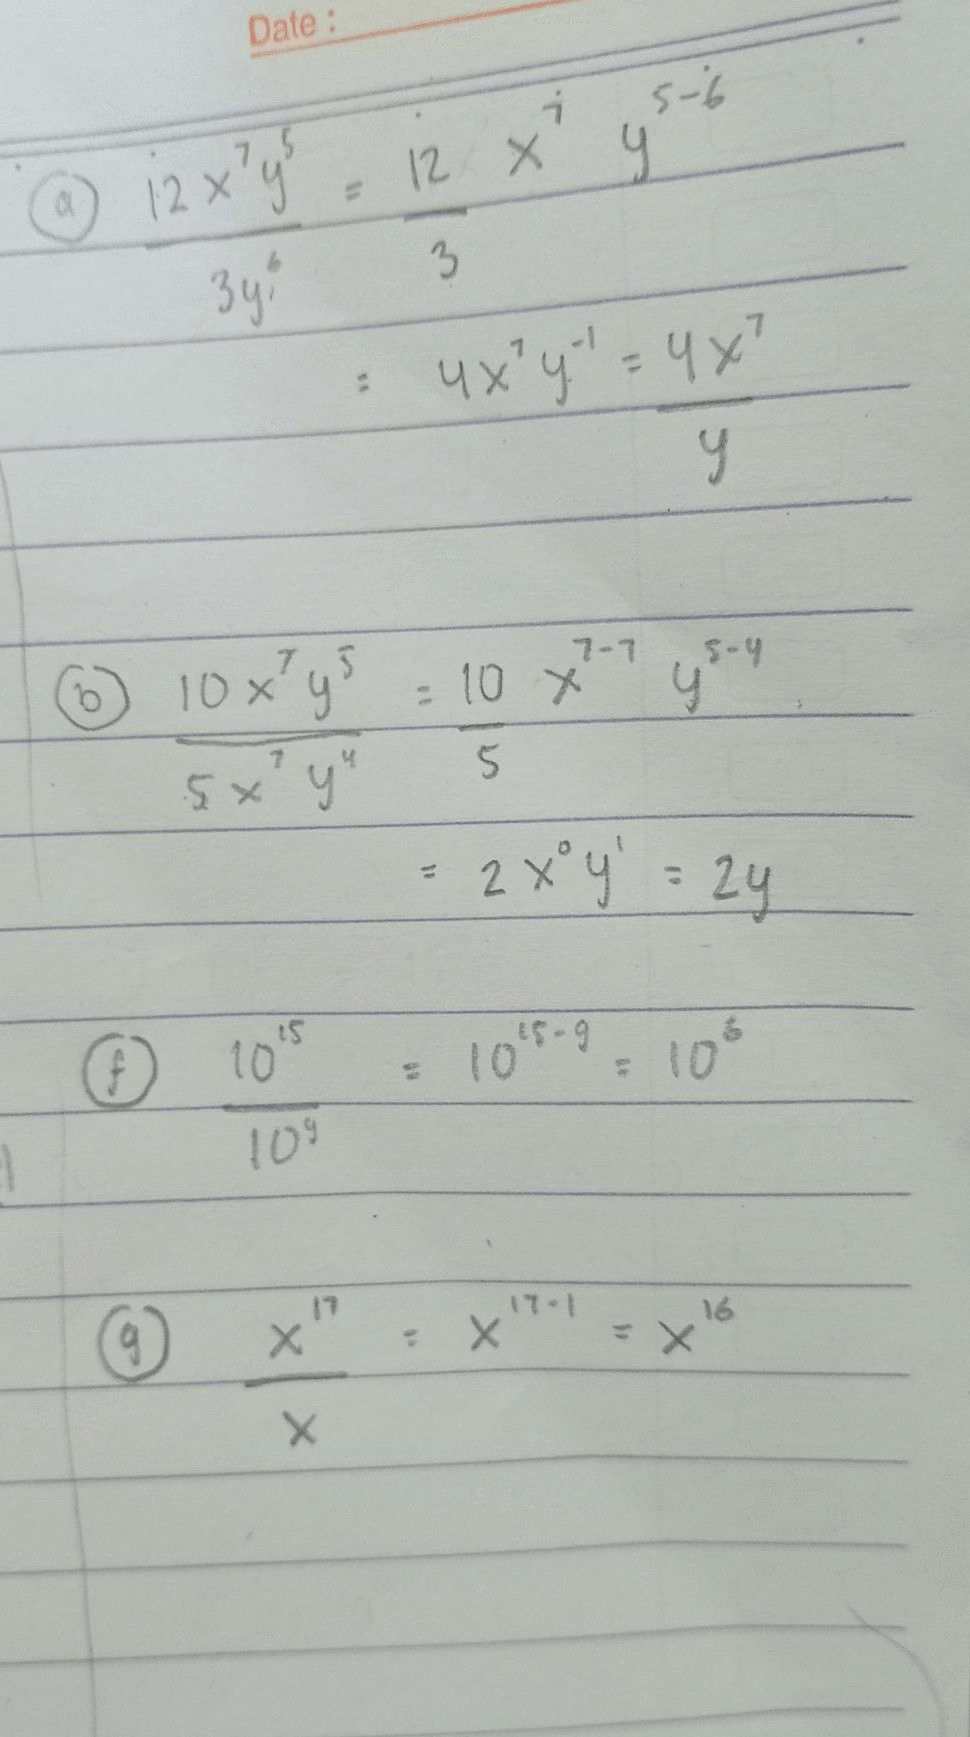 Date :
(a) 12x⁷y⁵/3y⁶ = 12/3 x⁷ y⁵⁻⁶
= 4x⁷y⁻¹ = 4x⁷/y
(b) 10x⁷y⁵/5x⁷y⁴ = 10/5 x⁷⁻⁷ y⁵⁻⁴
= 2x⁰y¹ = 2y
(f) 10¹⁵/10⁹ = 10¹⁵⁻⁹ = 10⁶
(g) x¹⁷/x = x¹⁷⁻¹ = x¹⁶